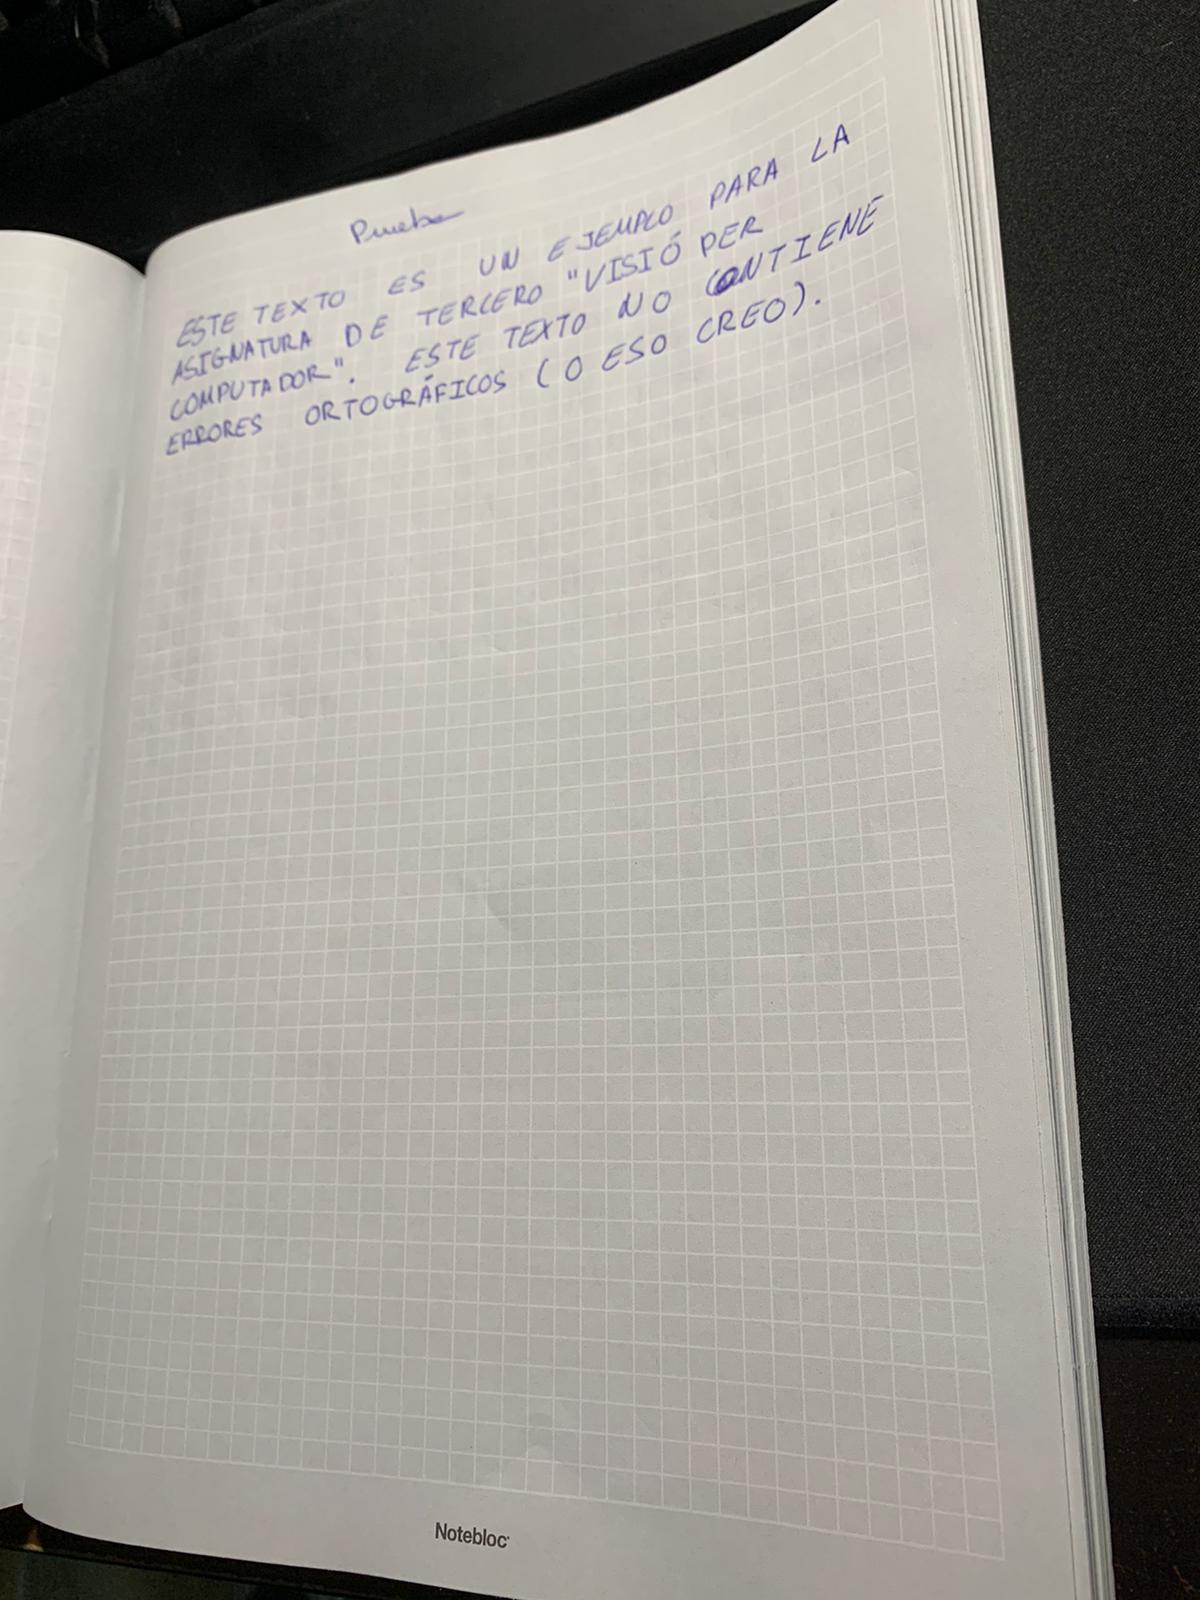 Prueba
ESTE TEXTO ES UN EJEMPLO PARA LA
ASIGNATURA DE TERCERO "VISIÓ PER
COMPUTADOR". ESTE TEXTO NO CONTIENE
ERRORES ORTOGRÁFICOS (O ESO CREO).
Notebloc